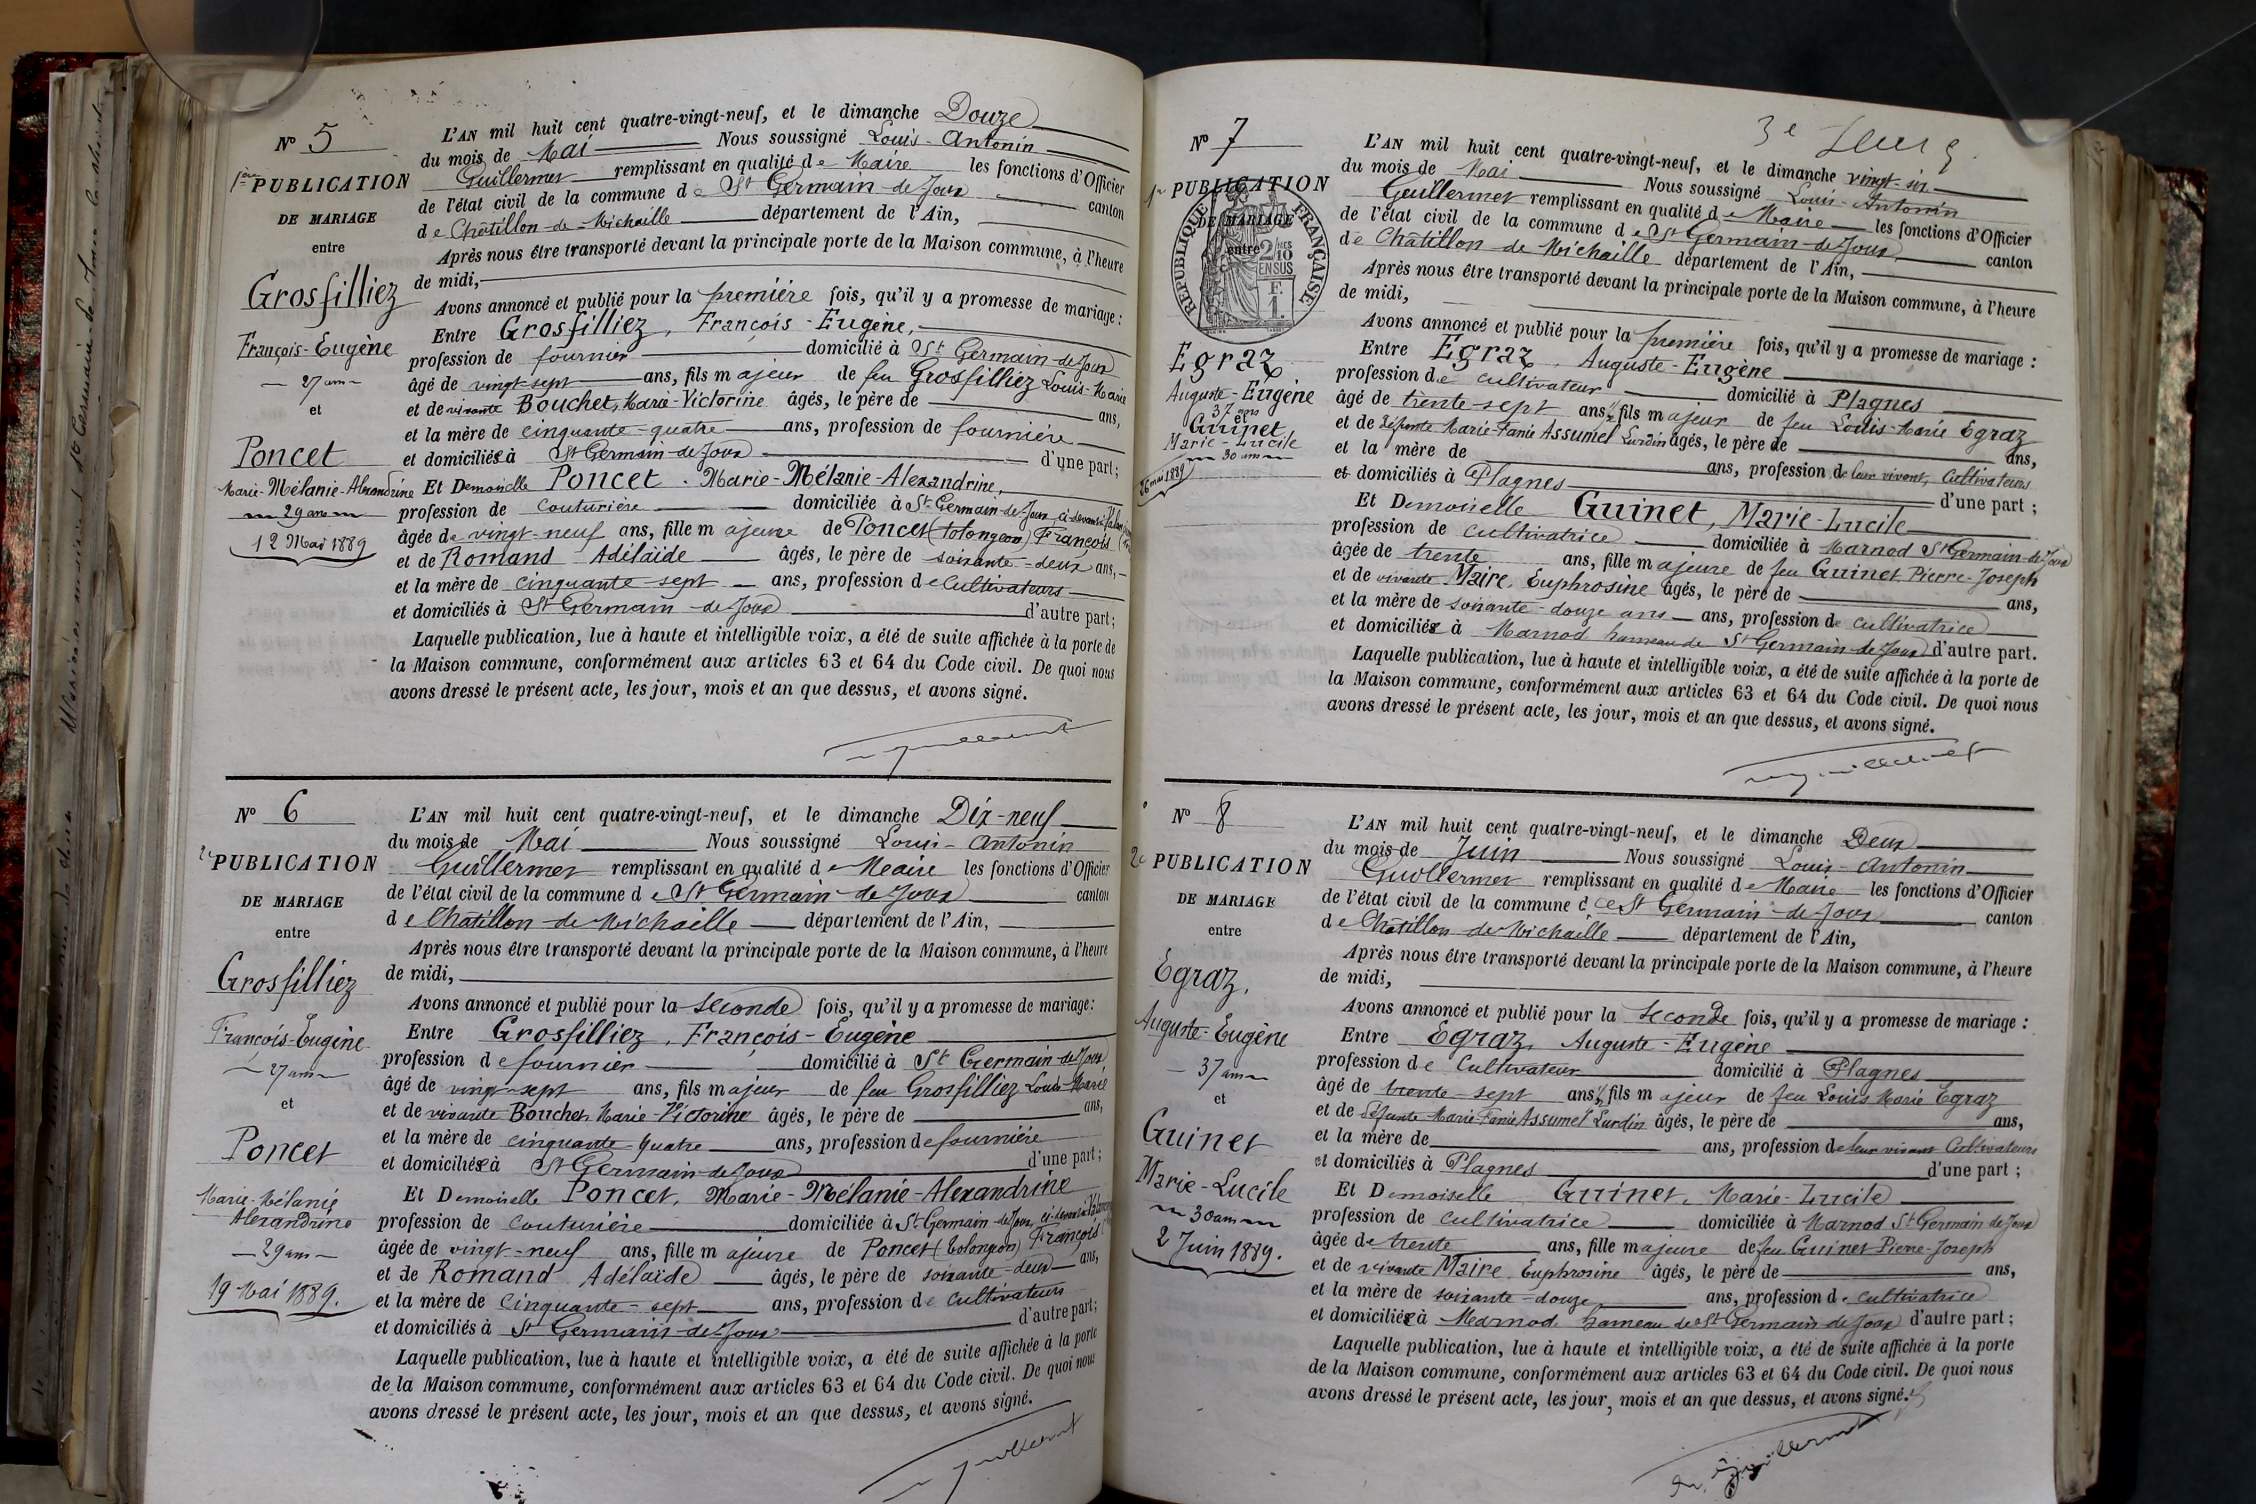 N° 5
1ère PUBLICATION
DE MARIAGE
entre
Grosfilliez
François-Eugène
27 ans
et
Poncet
Marie-Mélanie-Alexandrine
29 ans
12 Mai 1889
L'AN mil huit cent quatre-vingt-neuf, et le dimanche Douze
du mois de Mai Nous soussigné Louis-Antonin
Guillermet remplissant en qualité de Maire les fonctions d'Officier
de l'état civil de la commune de St Germain-de-Joux canton
de Châtillon-de-Michaille département de l'Ain,
Après nous être transporté devant la principale porte de la Maison commune, à l'heure
de midi,
Avons annoncé et publié pour la première fois, qu'il y a promesse de mariage :
Entre Grosfilliez, François-Eugène,
profession de fournier domicilié à St Germain-de-Joux
âgé de vingt-sept ans, fils majeur de feu Grosfilliez Louis-Marie
et de vivante Bouchet, Marie-Victorine âgés, le père de ans,
et la mère de cinquante-quatre ans, profession de fournière
et domiciliée à St Germain-de-Joux d'une part;
Et Demoiselle Poncet, Marie-Mélanie-Alexandrine,
profession de couturière domiciliée à St Germain-de-Joux, ci-devant à
âgée de vingt-neuf ans, fille majeure de Poncet (Tolongeon) François
et de Romand Adélaïde âgés, le père de soixante-deux ans,
et la mère de cinquante-sept ans, profession de cultivateurs
et domiciliés à St Germain-de-Joux d'autre part;
Laquelle publication, lue à haute et intelligible voix, a été de suite affichée à la porte de
la Maison commune, conformément aux articles 63 et 64 du Code civil. De quoi nous
avons dressé le présent acte, les jour, mois et an que dessus, et avons signé.
Guillermet
N° 6
2e PUBLICATION
DE MARIAGE
entre
Grosfilliez
François-Eugène
27 ans
et
Poncet
Marie-Mélanie
Alexandrine
29 ans
19 Mai 1889.
L'AN mil huit cent quatre-vingt-neuf, et le dimanche Dix-neuf
du mois de Mai Nous soussigné Louis-Antonin
Guillermet remplissant en qualité de Maire les fonctions d'Officier
de l'état civil de la commune de St Germain-de-Joux canton
de Châtillon-de-Michaille département de l'Ain,
Après nous être transporté devant la principale porte de la Maison commune, à l'heure
de midi,
Avons annoncé et publié pour la seconde fois, qu'il y a promesse de mariage:
Entre Grosfilliez, François-Eugène
profession de fournier domicilié à St Germain-de-Joux
âgé de vingt-sept ans, fils majeur de feu Grosfilliez Louis-Marie
et de vivante Bouchet, Marie-Victorine âgés, le père de ans,
et la mère de cinquante-quatre ans, profession de fournière
et domiciliée à St Germain-de-Joux d'une part;
Et Demoiselle Poncet, Marie-Mélanie-Alexandrine
profession de couturière domiciliée à St Germain-de-Joux, ci-devant à
âgée de vingt-neuf ans, fille majeure de Poncet (Tolongeon) François
et de Romand Adélaïde âgés, le père de soixante-deux ans,
et la mère de cinquante-sept ans, profession de cultivateurs
et domiciliés à St Germain-de-Joux d'autre part;
Laquelle publication, lue à haute et intelligible voix, a été de suite affichée à la porte
de la Maison commune, conformément aux articles 63 et 64 du Code civil. De quoi nous
avons dressé le présent acte, les jour, mois et an que dessus, et avons signé.
Guillermet
3e
N° 7
1re PUBLICATION
DE MARIAGE
entre
RÉPUBLIQUE FRANÇAISE
2/10 EN SUS
F. 1.
Egraz
Auguste-Eugène
37 ans
et
Guinet
Marie-Lucile
30 ans
26 mai 1889
L'AN mil huit cent quatre-vingt-neuf, et le dimanche vingt-six
du mois de Mai Nous soussigné Louis-Antonin
Guillermet remplissant en qualité de Maire les fonctions d'Officier
de l'état civil de la commune de St Germain-de-Joux canton
de Châtillon-de-Michaille département de l'Ain,
Après nous être transporté devant la principale porte de la Maison commune, à l'heure
de midi,
Avons annoncé et publié pour la première fois, qu'il y a promesse de mariage :
Entre Egraz, Auguste-Eugène
profession de cultivateur domicilié à Plagnes
âgé de trente-sept ans ½ fils majeur de feu Louis-Marie Egraz
et de défunte Marie-Fanie Assumel Lurdin âgés, le père de ans,
et la mère de ans, profession de leur vivant, Cultivateurs
et domiciliés à Plagnes d'une part ;
Et Demoiselle Guinet, Marie-Lucile
profession de cultivatrice domiciliée à Marnod St Germain-de-Joux
âgée de trente ans, fille majeure de feu Guinet Pierre-Joseph
et de vivante Maire, Euphrosine âgés, le père de ans,
et la mère de soixante-douze ans ans, profession de cultivatrice
et domiciliée à Marnod hameau de St Germain-de-Joux d'autre part.
Laquelle publication, lue à haute et intelligible voix, a été de suite affichée à la porte de
la Maison commune, conformément aux articles 63 et 64 du Code civil. De quoi nous
avons dressé le présent acte, les jour, mois et an que dessus, et avons signé.
Guillermet
N° 8
2e PUBLICATION
DE MARIAGE
entre
Egraz,
Auguste-Eugène
37 ans
et
Guinet
Marie-Lucile
30 ans
2 Juin 1889.
L'AN mil huit cent quatre-vingt-neuf, et le dimanche Deux
du mois de Juin Nous soussigné Louis-Antonin
Guillermet remplissant en qualité de Maire les fonctions d'Officier
de l'état civil de la commune de St Germain-de-Joux canton
de Châtillon-de-Michaille département de l'Ain,
Après nous être transporté devant la principale porte de la Maison commune, à l'heure
de midi,
Avons annoncé et publié pour la seconde fois, qu'il y a promesse de mariage :
Entre Egraz, Auguste-Eugène
profession de Cultivateur domicilié à Plagnes
âgé de trente-sept ans ½ fils majeur de feu Louis Marie Egraz
et de défunte Marie-Fanie Assumel Lurdin âgés, le père de ans,
et la mère de ans, profession de leur vivant Cultivateurs
et domiciliés à Plagnes d'une part ;
Et Demoiselle Guinet, Marie-Lucile
profession de cultivatrice domiciliée à Marnod St Germain de Joux
âgée de trente ans, fille majeure de feu Guinet Pierre-Joseph
et de vivante Maire Euphrosine âgés, le père de ans,
et la mère de soixante-douze ans, profession de cultivatrice
et domiciliée à Marnod hameau de St Germain-de-Joux d'autre part ;
Laquelle publication, lue à haute et intelligible voix, a été de suite affichée à la porte
de la Maison commune, conformément aux articles 63 et 64 du Code civil. De quoi nous
avons dressé le présent acte, les jour, mois et an que dessus, et avons signé.
Guillermet